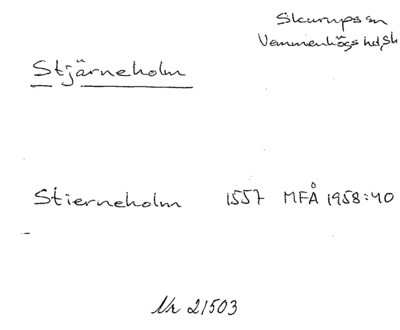 Skurups sn
Vemmenhögs hd, Sk
Stjärneholm
Stierneholm 1557 MFÅ 1958:40
Nr 21503